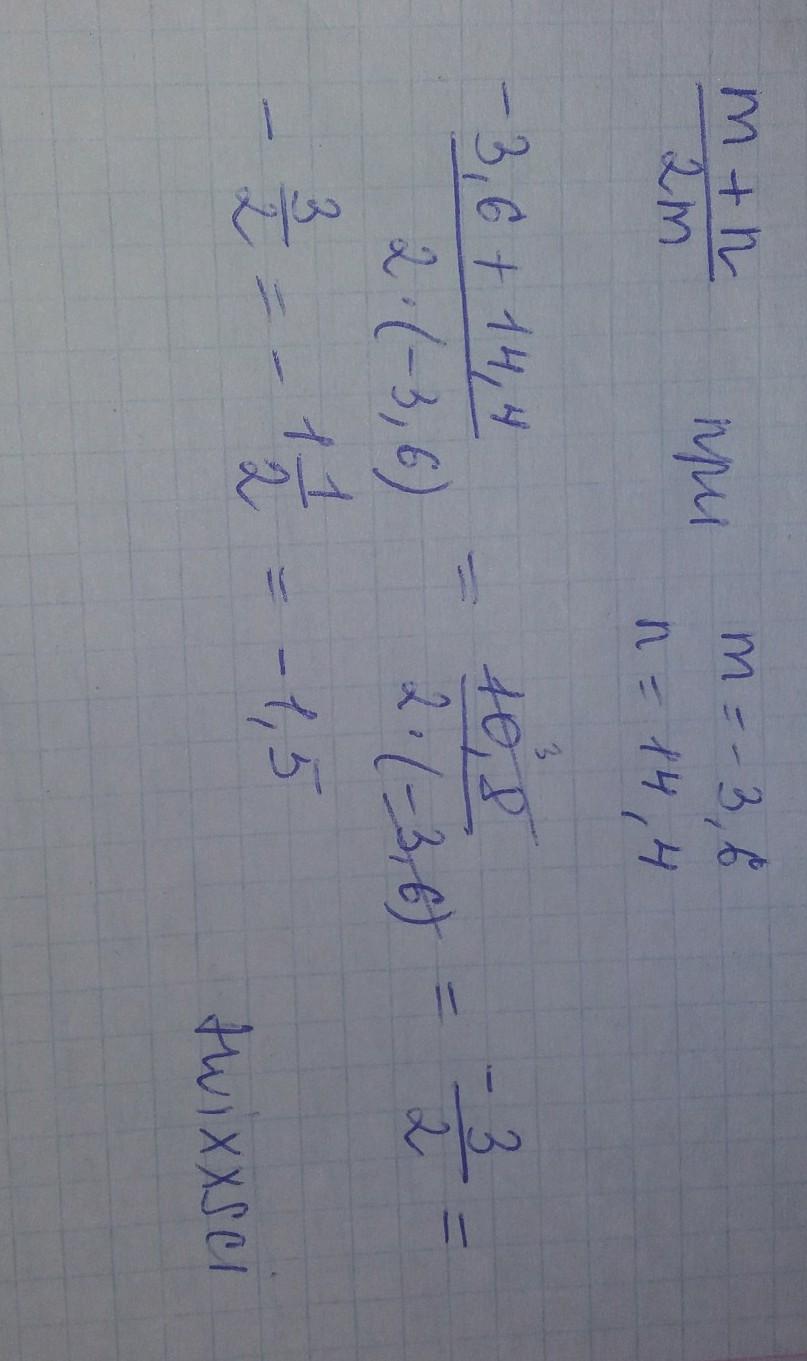 m + n / 2m при m = -3,6
n = 14,4
-3,6 + 14,4 / 2·(-3,6) = 10,8 3 / 2·(-3,6) = -3/2 =
- 3/2 = -1 1/2 = -1,5
twixxsci